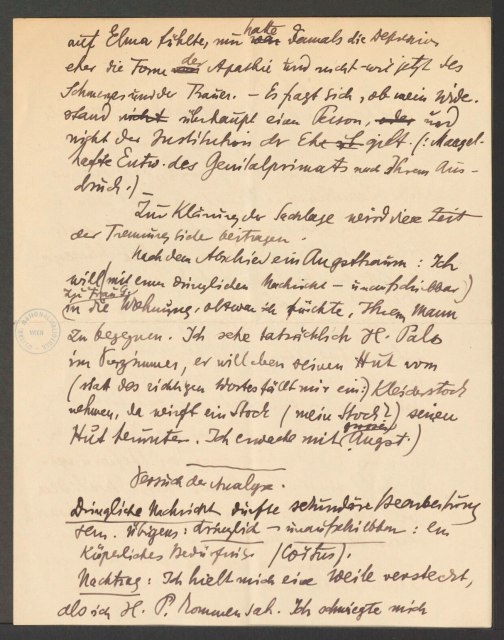 auf Elma fühlte, nur hatte damals die Depression
eher die Form der Apathie und nicht wie jetzt des
Schmerzes und der Trauer. – Es fragt sich, ob mein Wider-
stand nicht überhaupt einer Person, oder und
nicht der Institution der Ehe ist gilt. (: Mangel-
hafte Entw. des Genitalprimats nach Ihrem Aus-
druck.) –
Zur Klärung der Sachlage wird die Zeit
der Trennung sicher beitragen.
Nach dem Abschied ein Angsttraum: Ich
will (mit einer dringlichen Nachricht – unaufschiebbar)
zu Frau G.
in die Wohnung, obzwar ich fürchte, Ihrem Mann
zu begegnen. Ich sehe tatsächlich H. Palo
im Vorzimmer, er will eben seinen Hut vom
(statt des richtigen Wortes fällt mir ein:) Kleiderstock
nehmen, da wirft ein Stock (mein Stock?) seinen
Hut herunter. Ich erwache mit grosser Angst.)
Versuch der Analyse.
Dringliche Nachricht dürfte sekundäre Bearbeitung
sein. Übrigens: dringlich – unaufschiebbar: ein
Körperliches Bedürfnis (Coitus).
Nachtrag: Ich hielt mich eine Weile versteckt,
als ich H. P. kommen sah. Ich schmiegte mich